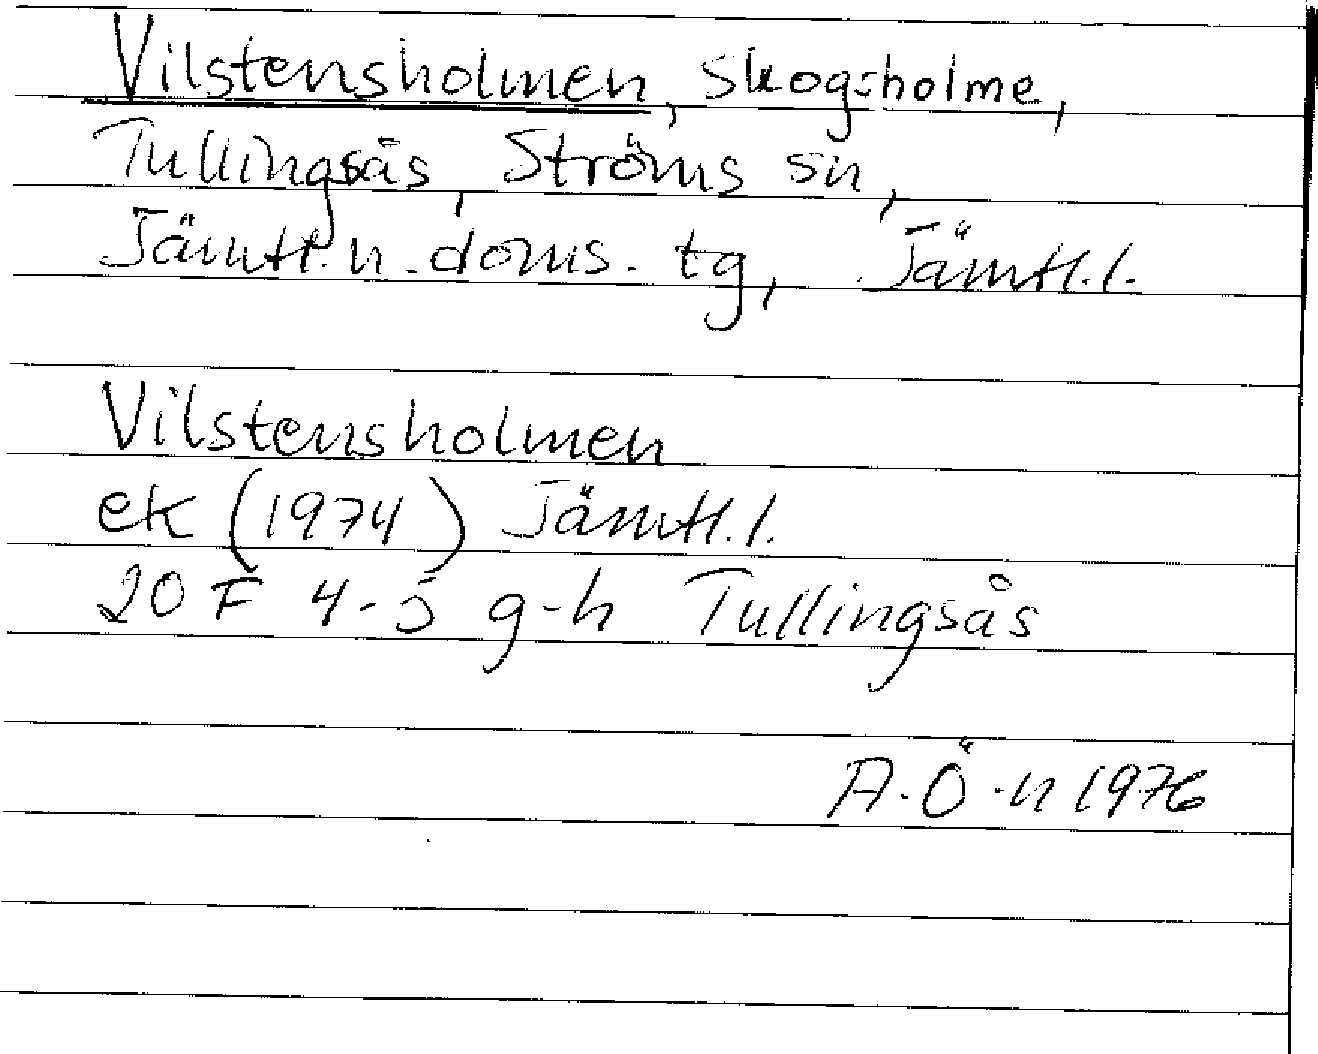 Vilstensholmen, Skogsholme,
Tullingsås, Ströms sn,
Jämtl. n. doms. tg, Jämtl. l.
Vilstensholmen
ek (1974) Jämtl. l.
20 F 4-5 g-h Tullingsås
A. Ö-n 1976